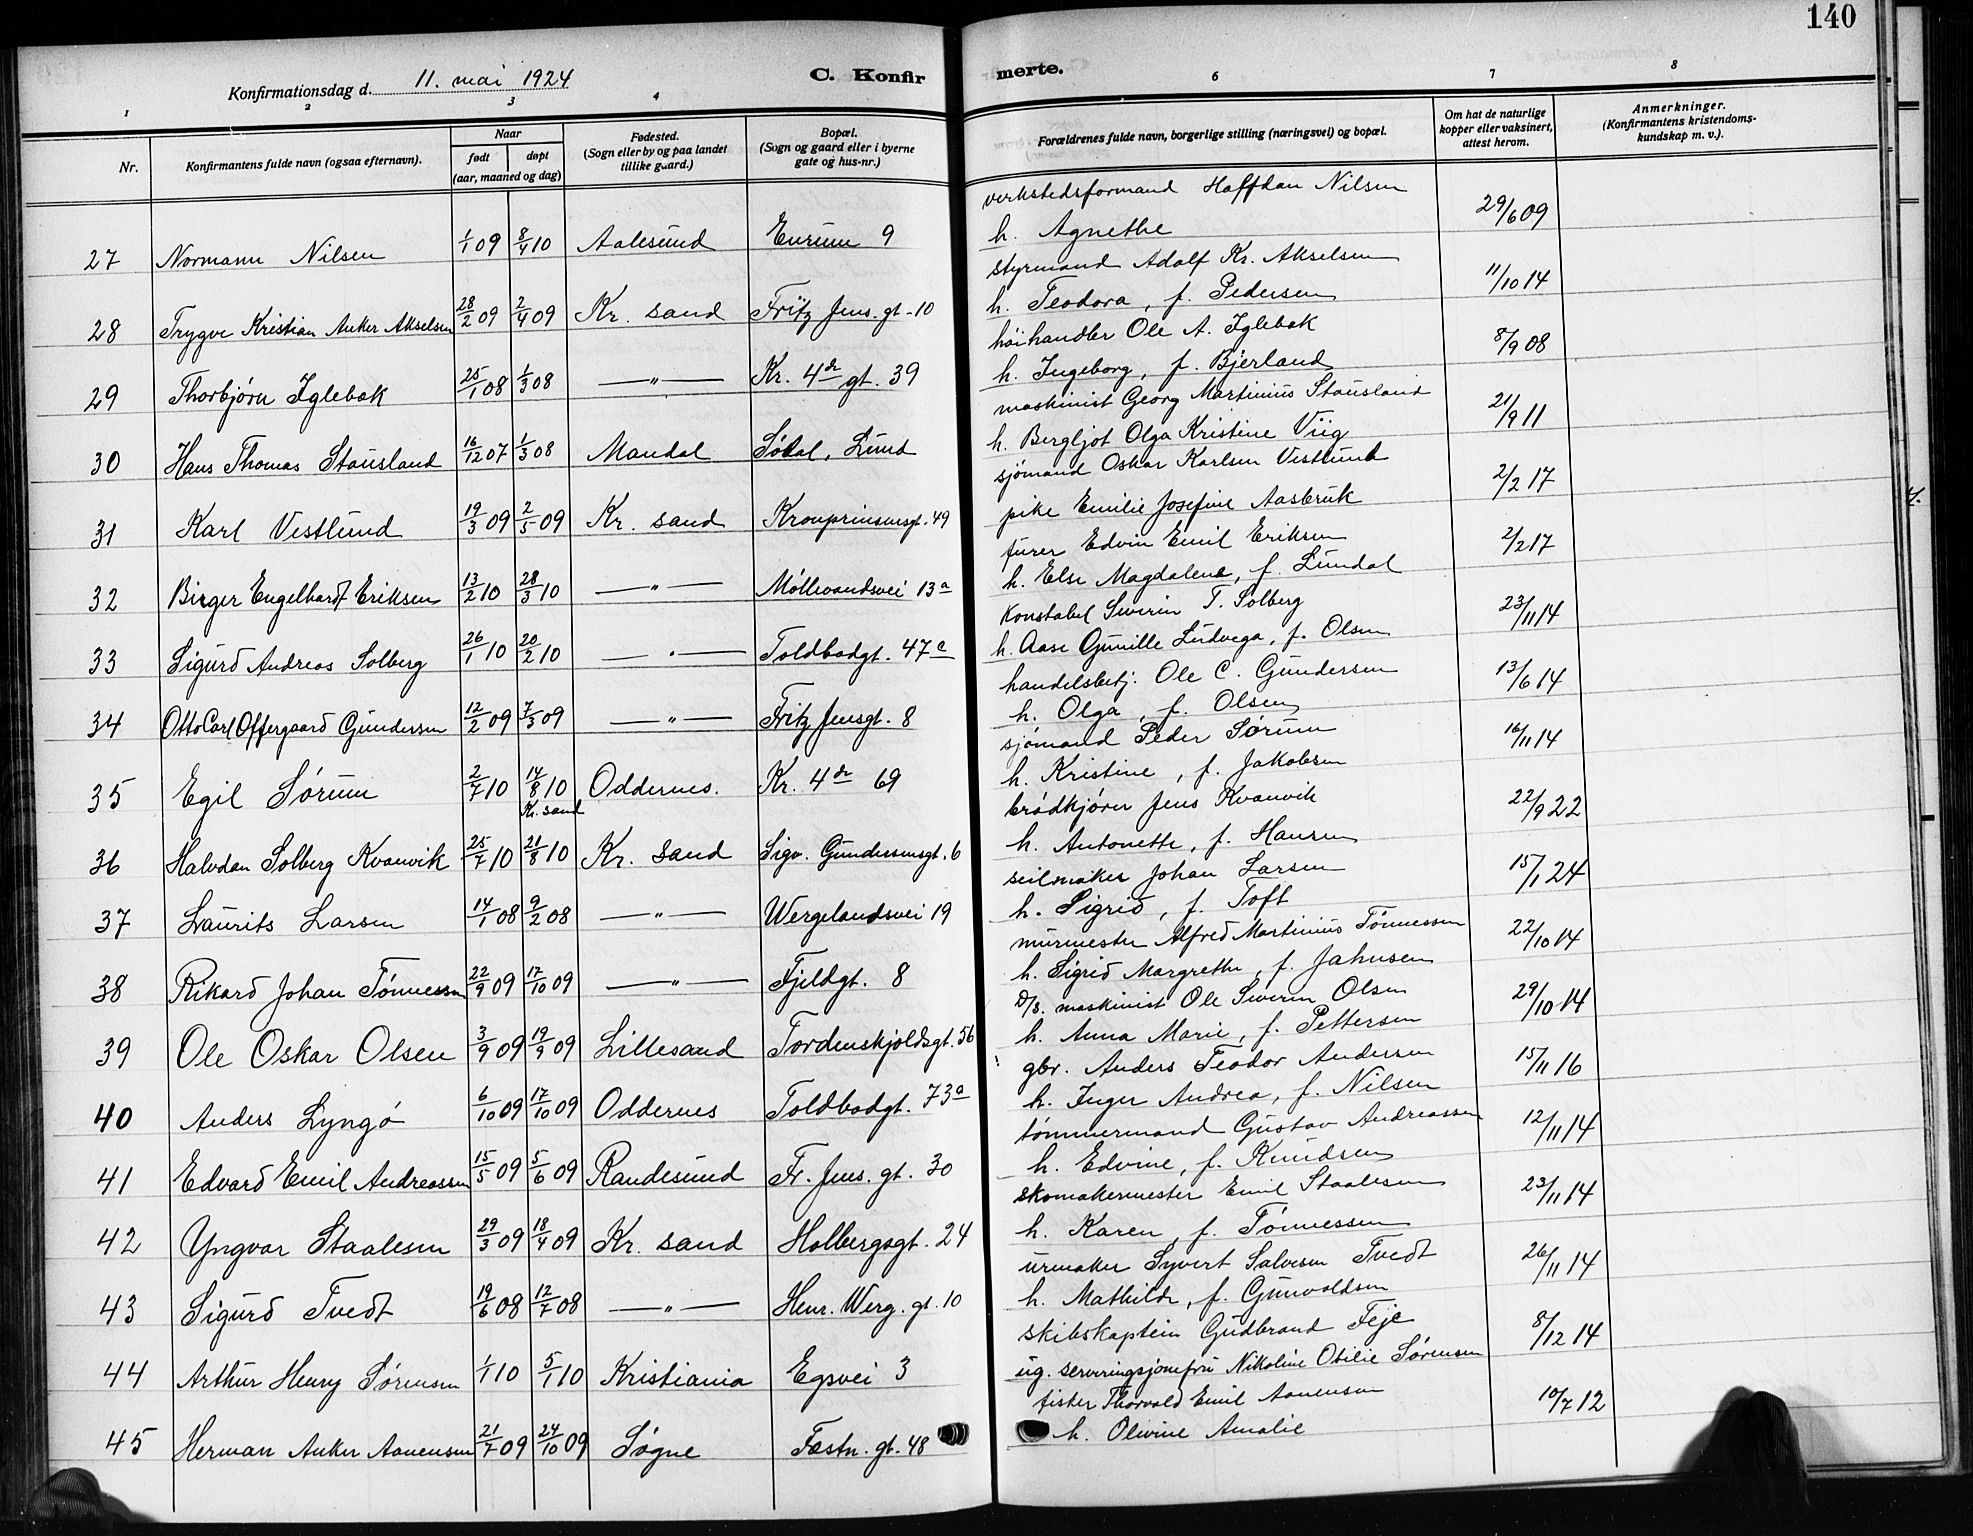 140
Konfirmationsdag d. 11. mai 1924
C. Konfir merte.
1 2 3 4 6 7 8
Nr.
Konfirmantens fulde navn (ogsaa efternavn).
Naar
født
døpt
(aar, maaned og dag)
Fødested.
(Sogn eller by og paa landet
tillike gaard.)
Bopæl.
(Sogn og gaard eller i byerne
gate og hus-nr.)
Forældrenes fulde navn, borgerlige stilling (næringsvei) og bopæl.
Om hat de naturlige
kopper eller vaksinert,
attest herom.
Anmerkninger.
(Konfirmantens kristendoms-
kundskap m. v.).
27 Normann Nilsen 1/1 09 8/4 10 Aalesund 9
verkstedsformand Halfdan Nilsen
h. Agnethe
29/6 09
28 Trygve Kristian Anker Akselsen 28/2 09 2/4 09 Kr. sand Fritz Jens. gt. 10
styrmand Adolf Kr. Akselsen
h. Teodora, f. Pedersen
11/10 14
29 Thorbjørn Iglebæk 25/1 08 1/3 08 —"— Kr. 4de gt. 39
høihandler Ole A. Iglebæk
h. Ingeborg, f. Bjerland
8/9 08
30 Hans Thomas Stausland 16/12 07 1/3 08 Mandal Sødal, Lund
maskinist Georg Martinius Stausland
h. Bergljot Olga Kristine Viig
21/9 11
31 Karl Vestlund 19/3 09 2/5 09 Kr. sand Kronprinsensgt. 49
sjømand Oskar Karlsen Vestlund
pike Emilie Josefine Aasbruk
2/2 17
32 Birger Engelhardt Eriksen 13/2 10 28/3 10 —"— Møllevandsvei 13a
furer Edvin Emil Eriksen
h. Else Magdalene, f. Lundal
2/2 17
33 Sigurd Andreas Solberg 26/1 10 20/2 10 —"— Toldbodgt. 47c
konstabel Severin T. Solberg
h. Aase Gunille Ludvega, f. Olsen
23/11 14
34 Otto Carl Offergaard Gundersen 12/2 09 7/3 09 —"— Fritz Jensgt. 8
handelsbetj. Ole C. Gundersen
h. Olga, f. Olsen
13/6 14
35 Egil Sørum 2/7 10 14/8 10 Kr. sand Oddernes. Kr. 4de 69
sjømand Peder Sørum
h. Kristine, f. Jakobsen
16/11 14
36 Halvdan Solberg Kvanvik 25/7 10 21/8 10 Kr. sand Sigv. Gundersensgt. 6
brødkjører Jens Kvanvik
h. Antonette, f. Hansen
22/9 22
37 Laurits Larsen 14/1 08 9/2 08 —"— Wergelandsvei 19
seilmaker Johan Larsen
h. Sigrid, f. Toft
15/1 24
38 Rikard Johan Tønnessen 22/9 09 17/10 09 —"— Fjeldgt. 8
murmester Alfred Martinius Tønnessen
h. Sigrid Margrethe, f. Jahnsen
22/10 14
39 Ole Oskar Olsen 3/9 09 19/9 09 Lillesand Tordenskjoldsgt. 56
D/S. maskinist Ole Severin Olsen
h. Anna Marie, f. Pettersen
29/10 14
40 Anders Lyngø 6/10 09 17/10 09 Oddernes Toldbodgt. 73a
gbr. Anders Teodor Andersen
h. Inger Andrea, f. Nilsen
15/11 16
41 Edvard Emil Andreassen 15/5 09 5/6 09 Randesund Fr. Jens. gt. 30
tømmermand Gustav Andreassen
h. Edvine, f. Knudsen
12/11 14
42 Yngvar Staalesen 29/3 09 18/4 09 Kr. sand Holbergsgt. 24
skomakermester Emil Staalesen
h. Karen, f. Tønnessen
23/11 14
43 Sigurd Tvedt 19/6 08 12/7 08 —"— Henr. Werg. gt. 10
urmaker Syvert Salvesen Tvedt
h. Mathilde, f. Gunvaldsen
26/11 14
44 Arthur Henry Sørensen 1/1 10 5/1 10 Kristiania Egsvei 3
skibskaptein Gudbrand Feje
ug. serveringsjomfru Nikoline Otilie Sørensen
8/12 14
45 Herman Anker Aanensen 21/7 09 24/10 09 Søgne Fæstn. gt. 48
fisker Thorvald Emil Aanensen
h. Olivine Amalie
10/7 12